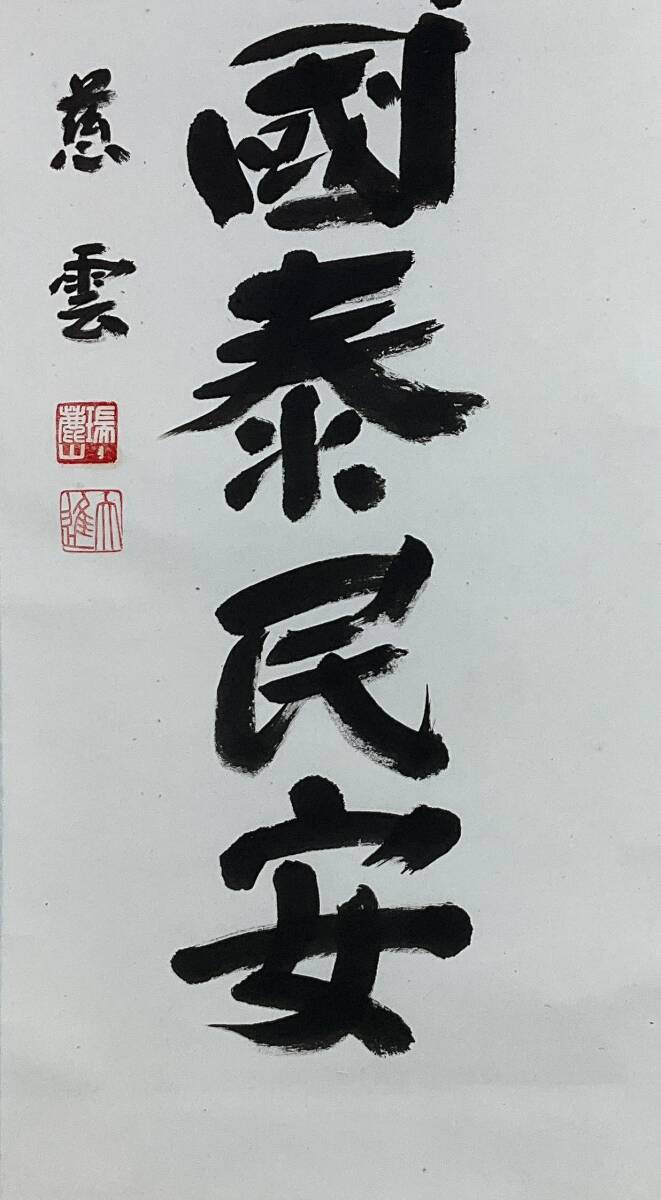 國泰民安
慈雲